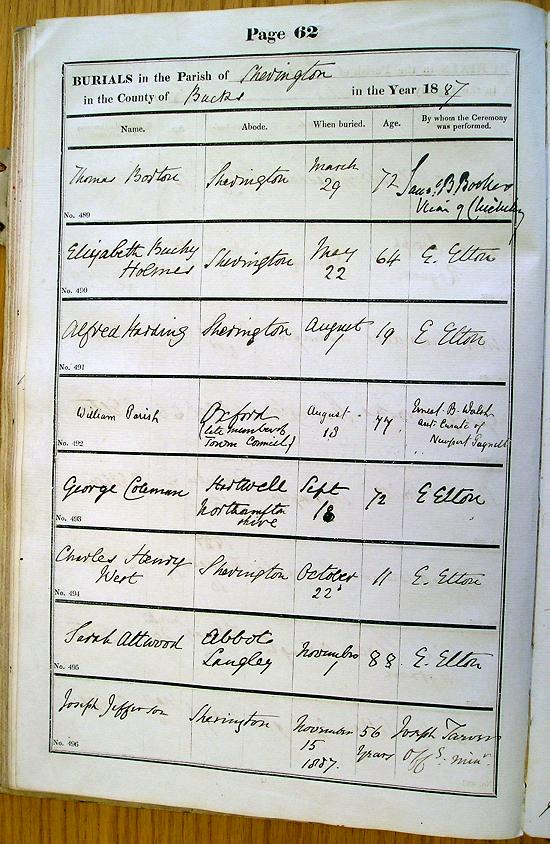 Page 62
BURIALS in the Parish of Sherington
in the County of Bucks in the Year 1887
Name. Abode. When buried. Age. By whom the Ceremony was performed.
Thomas Borton Sherington March 29 72 B Booker
Vicar of Chicheley
No. 489
Elizabeth Bucky Sherington May 22 64 E. Elton
Holmes
No. 490
Alfred Harding Sherington August 7 19 E Elton
No. 491
William Parish Oxford August 13 77 Ernest B. Walsh
(late member of Curate of
Town Council) Newport Pagnell
No. 492
George Coleman Hartwell Sept 18 72 E Elton
Northampton
shire
No. 493
Charles Henry Sherington October 22 11 E. Elton
West
No. 494
Sarah Attwood Abbots November 88 E. Elton
Langley
No. 495
Joseph Jefferson Sherington November 56 Joseph
15 years Offg. minr.
1887.
No. 496